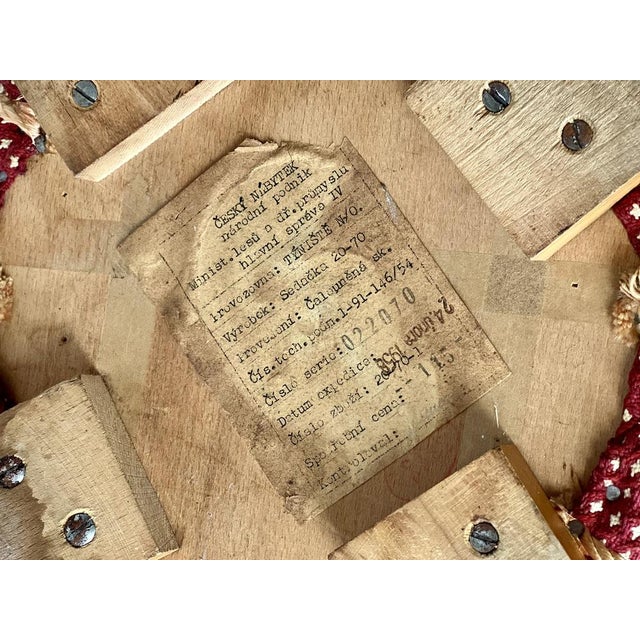 ČESKÝ NÁBYTEK
národní podnik
Minist.lesů a dř.průmyslu
hlavní správa IV
Provozovna: TÝNIŠTĚ N/O.
Výrobek: Sedačka 20-70
Provedení: Čalouněná sk.
Čís.tech.podm.1-91-146/54
Číslo serie: 022070
Datum expedice: 24.únor 1956
Číslo zboží:
Spotřební cena:
Kontroloval: